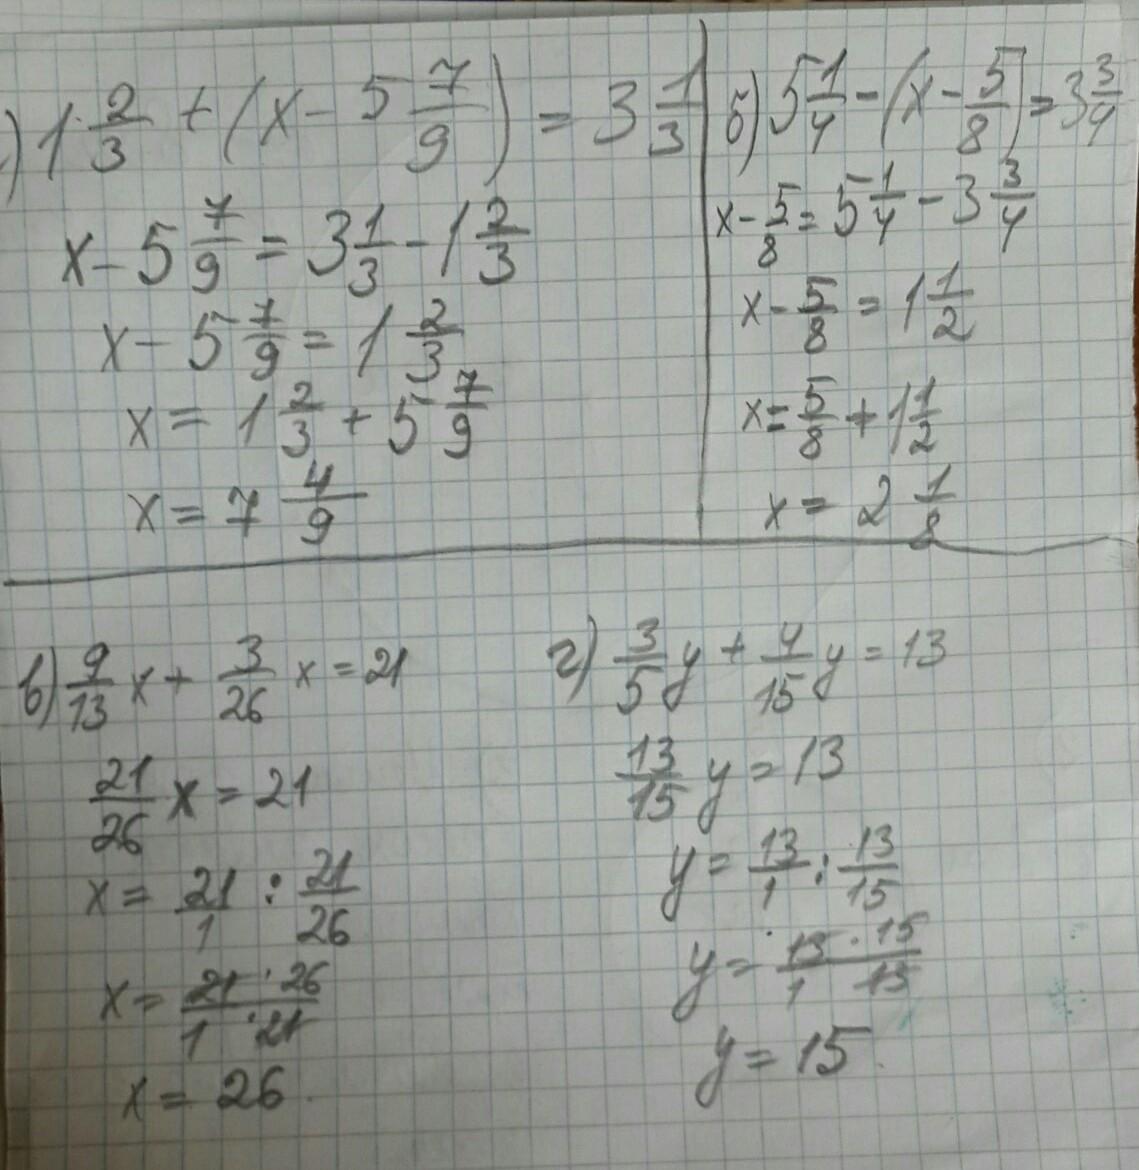 ) 1 2/3 + (x - 5 7/9) = 3 1/3
x - 5 7/9 = 3 1/3 - 1 2/3
x - 5 7/9 = 1 2/3
x = 1 2/3 + 5 7/9
x = 7 4/9
б) 5 1/4 - (x - 5/8) = 3 3/4
x - 5/8 = 5 1/4 - 3 3/4
x - 5/8 = 1 1/2
x = 5/8 + 1 1/2
x = 2 1/8
в) 9/13 x + 3/26 x = 21
21/26 x = 21
x = 21/1 : 21/26
x = 21 · 26 / 1 · 21
x = 26.
г) 3/5 y + 4/15 y = 13
13/15 y = 13
y = 13/1 : 13/15
y = 13 · 15 / 1 13
y = 15.